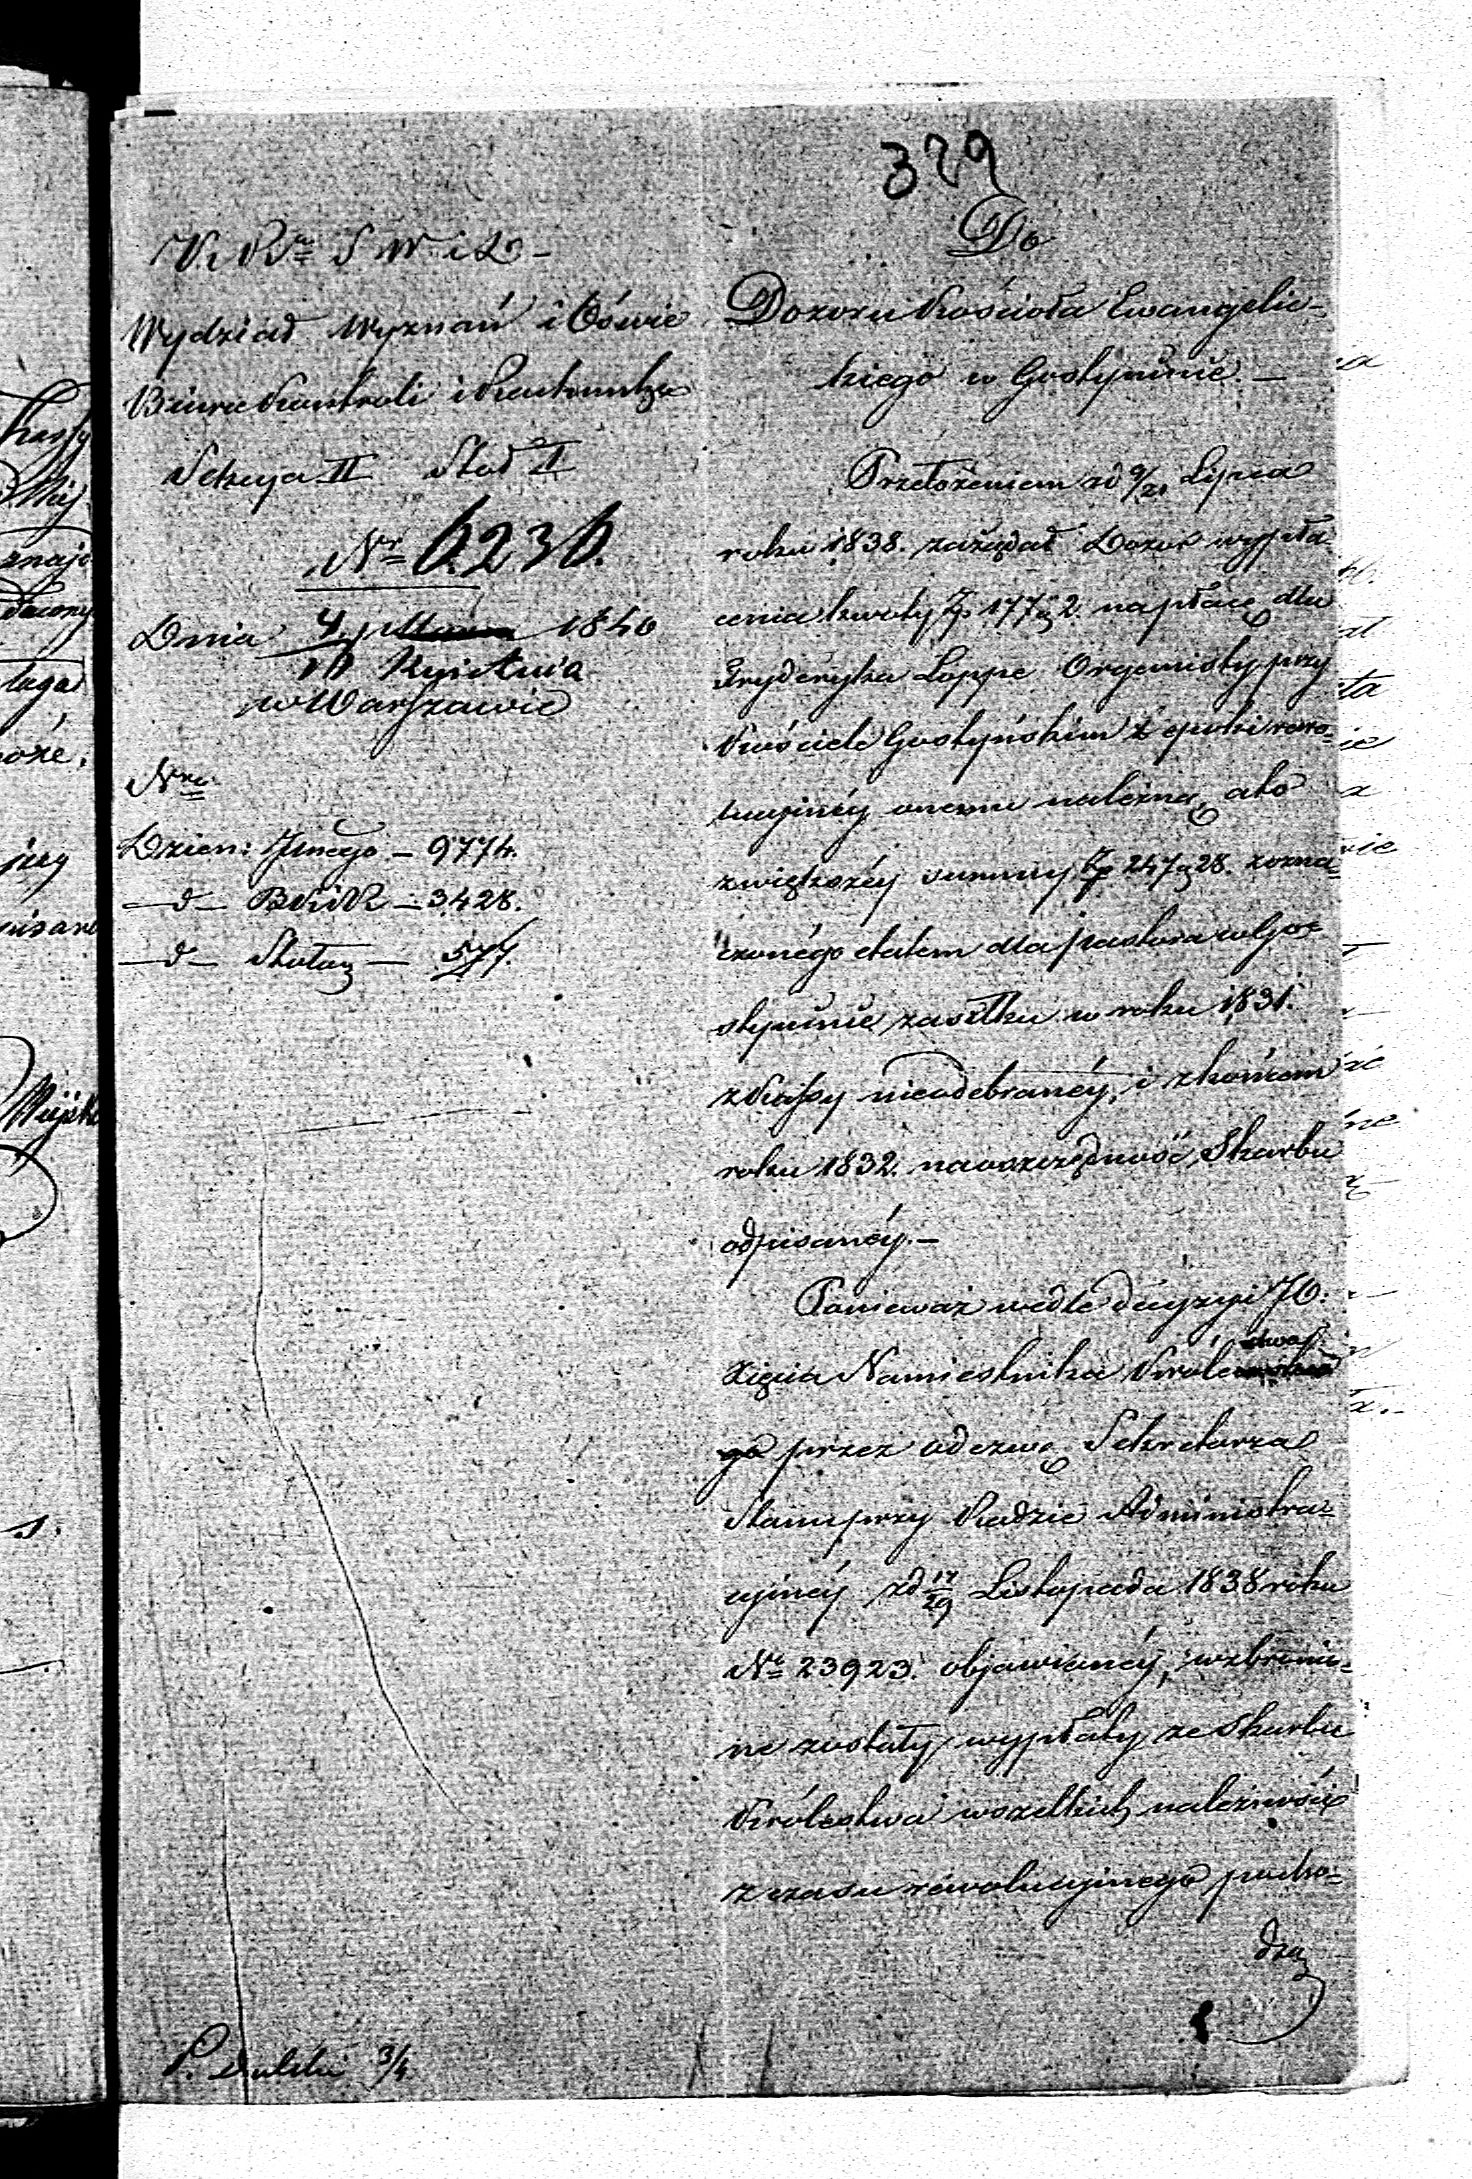 329
K. R. S. W. i D. –
Wydział Wyznań i Oświe
Biuro Kontroli i Rachunk
Sekcya II Stoł II
Nr 6.236.
Dnia 4/16 Kwietnia 1840
w Warszawie
Nra
Dzien: Jlnego – 9774.
– d – BKiR – 3428.
– d – Stołu – 577.
Do
Dozoru Kościoła Ewangelic-
kiego w Gostyninie. –
Przełożeniem z d 9/21 Lipca
roku 1838. zażądał Dozór wypła-
cenia kwoty Zp 177 g 2. na płacę dla
Fryderyka Loppe Organisty przy
Kościele Gostyńskim z epoki rewo-
lucyjnéy onemu należną, a to
z większéy summy Zp 247 g 28. zozna-
czonego etatem dla pastora w Go-
styninie zasiłku w roku 1831.
z Kassy nieodebranéy, i z końcem
roku 1832. na oszczędność Skarbu
odpisanéy. –
Ponieważ wedle decyzyi JO.
Xięcia Namiestnika Królewskie
go przez odezwę Sekretarza
Stanu przy Radzie Administra-
cyjnéy z d 17/29 Listopada 1838 roku
Nr 23923. objawionéy, wzbronio-
ne zostały wypłaty ze Skarbu
Królestwa wszelkich należności
z czasu rewolucyjnego pocho-
dzą
3/4